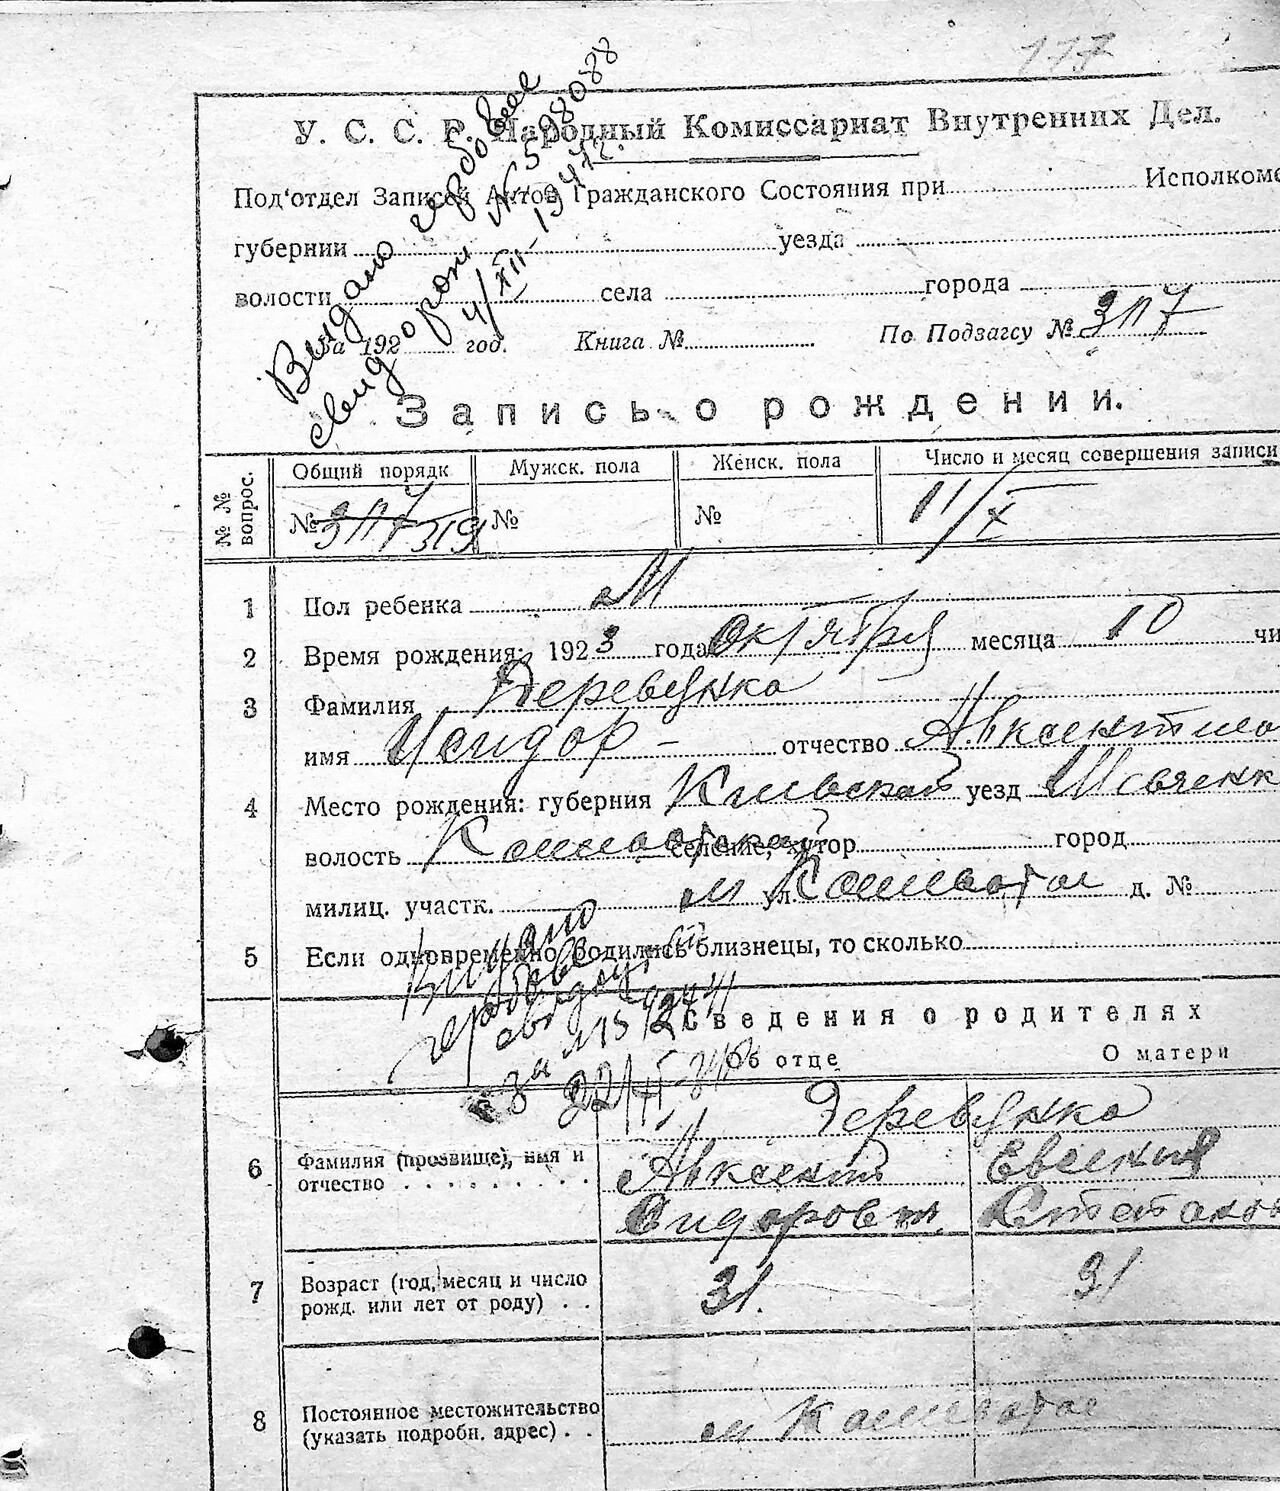 117
У. С. С. Р. Народный Комиссариат Внутренних Дел.
Под'отдел Записей Актов Гражданского Состояния при Исполкоме
губернии уезда
волости села города
За 192 год. Книга № По Подзагсу № 317
Выдано гербовое
свид о рож № 598088
4/XII-1947г.
Запись о рождении.
№№ вопрос. Общий порядк Мужск. пола Женск. пола Число и месяц совершения записи
№ 317 319 № № 11/X
1 Пол ребенка М
2 Время рождения: 1923 года Октября месяца 10 чи
3 Фамилия Деревянко
имя Исидор - отчество Авксентиев
4 Место рождения: губерния Киевской уезд
волость селение, хутор город
милиц. участк. м ул. д. №
5 Если одновременно родились близнецы, то сколько
Видано
гербове
свідоц
за
22/
Сведения о родителях
Об отце О матери
Деревянко
6 Фамилия (прозвище), имя и Авксентий Евгения
отчество Сидорович. Степанов
7 Возраст (год, месяц и число 31. 31
рожд. или лет от роду)
8 Постоянное местожительство
(указать подробн. адрес) м